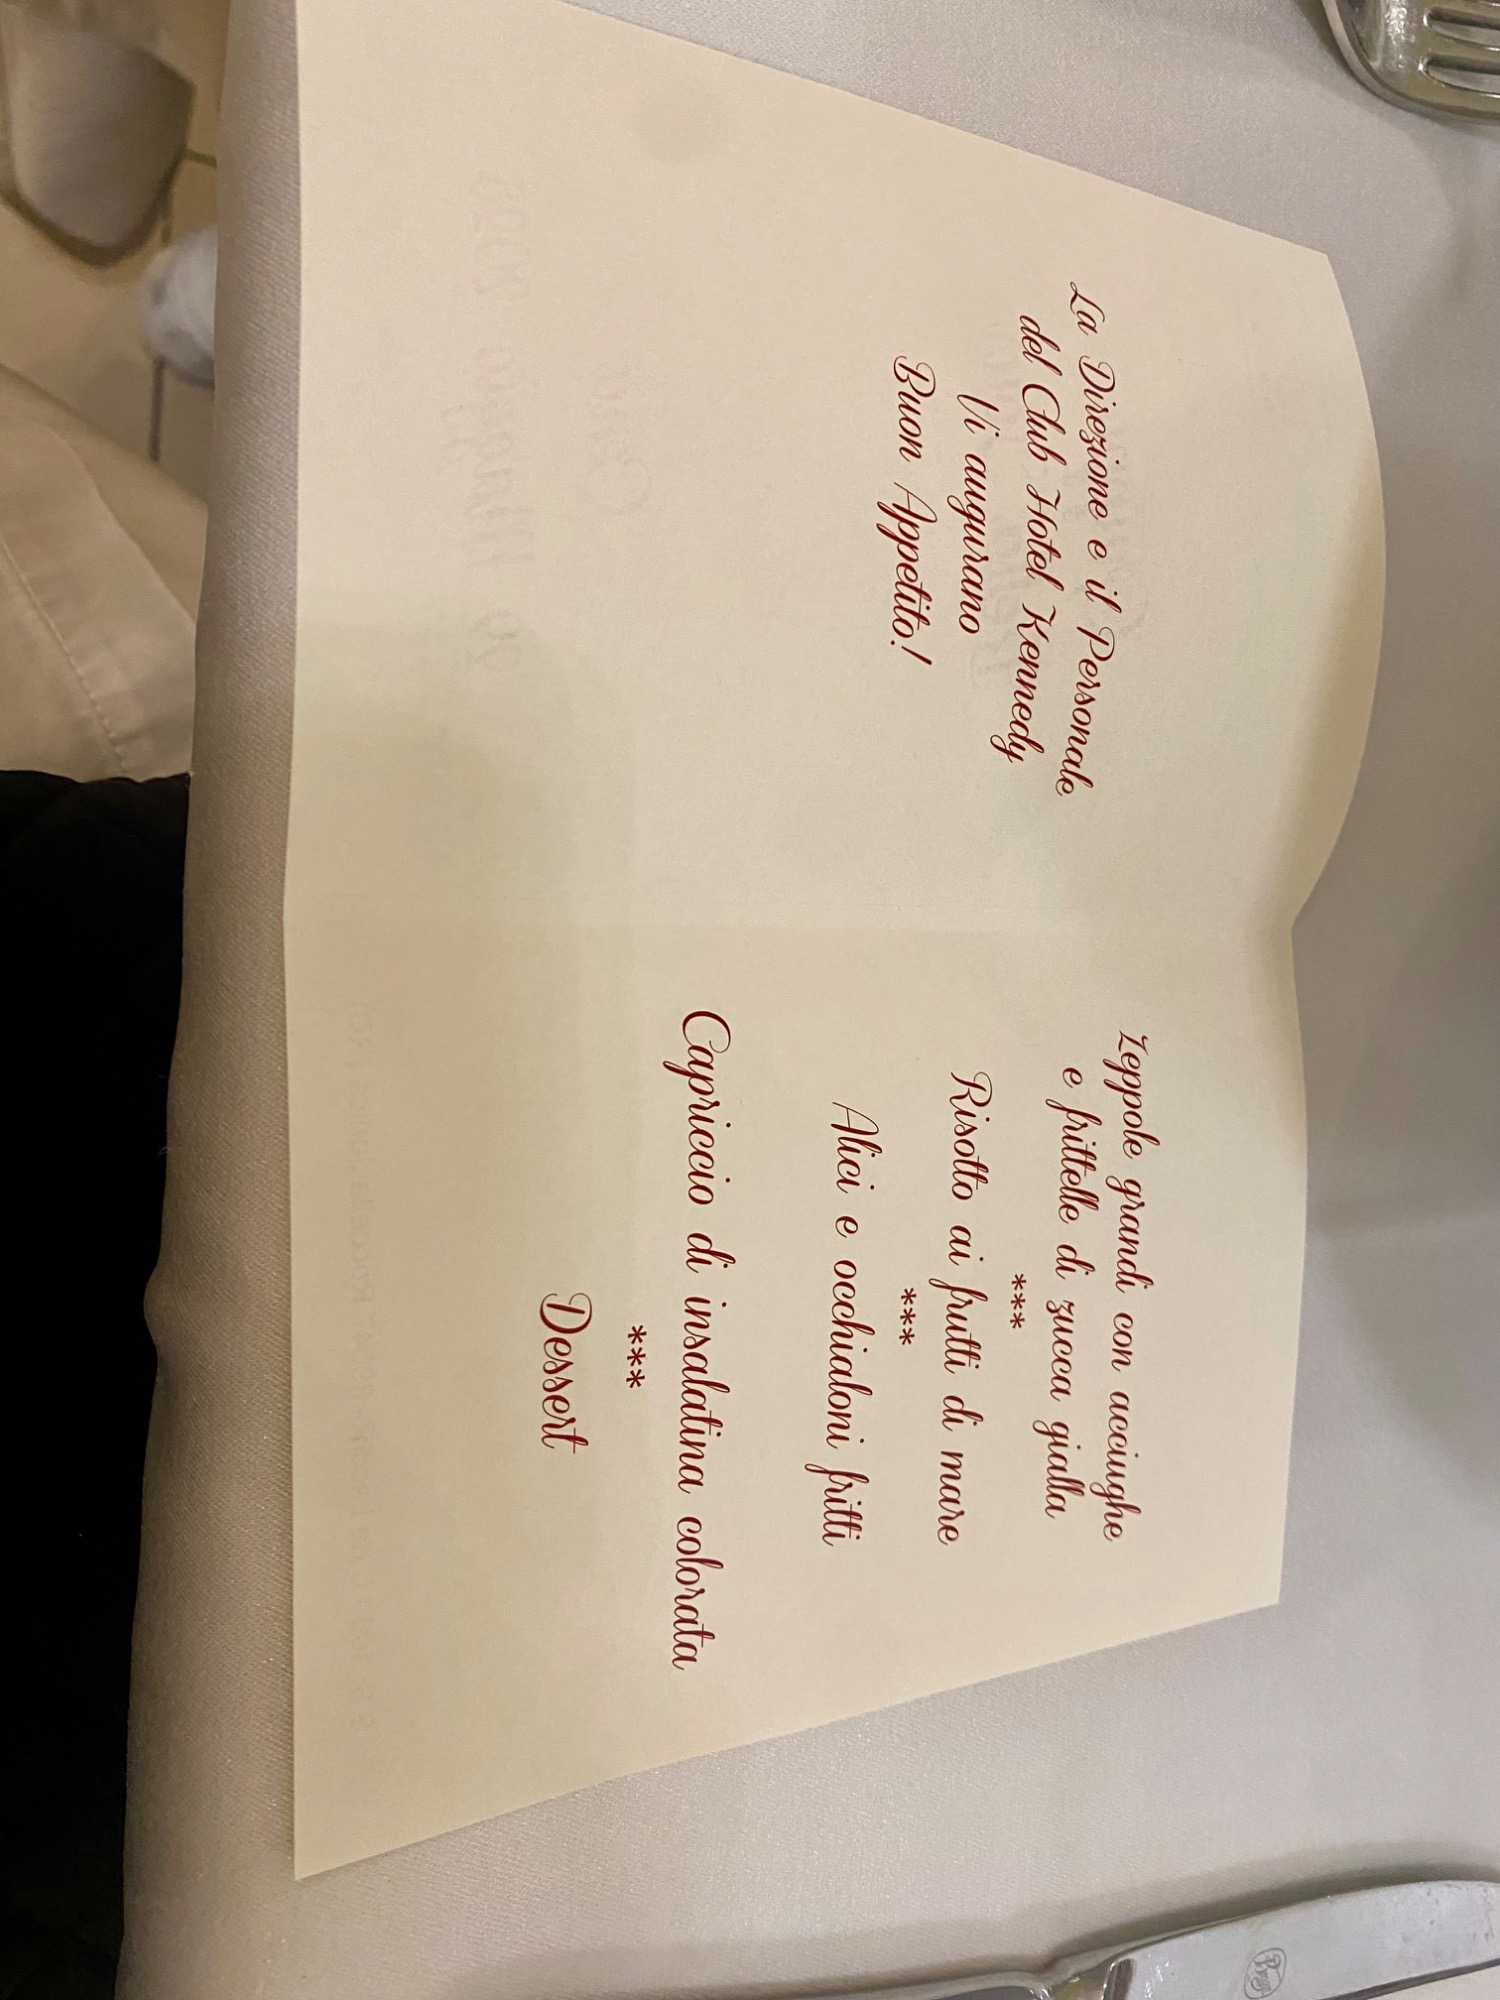 La Direzione e il Personale
del Club Hotel Kennedy
Vi augurano
Buon Appetito!
Zeppole grandi con acciughe
e frittelle di zucca gialla
***
Risotto ai frutti di mare
***
Alici e occhialoni fritti
Capriccio di insalatina colorata
***
Dessert